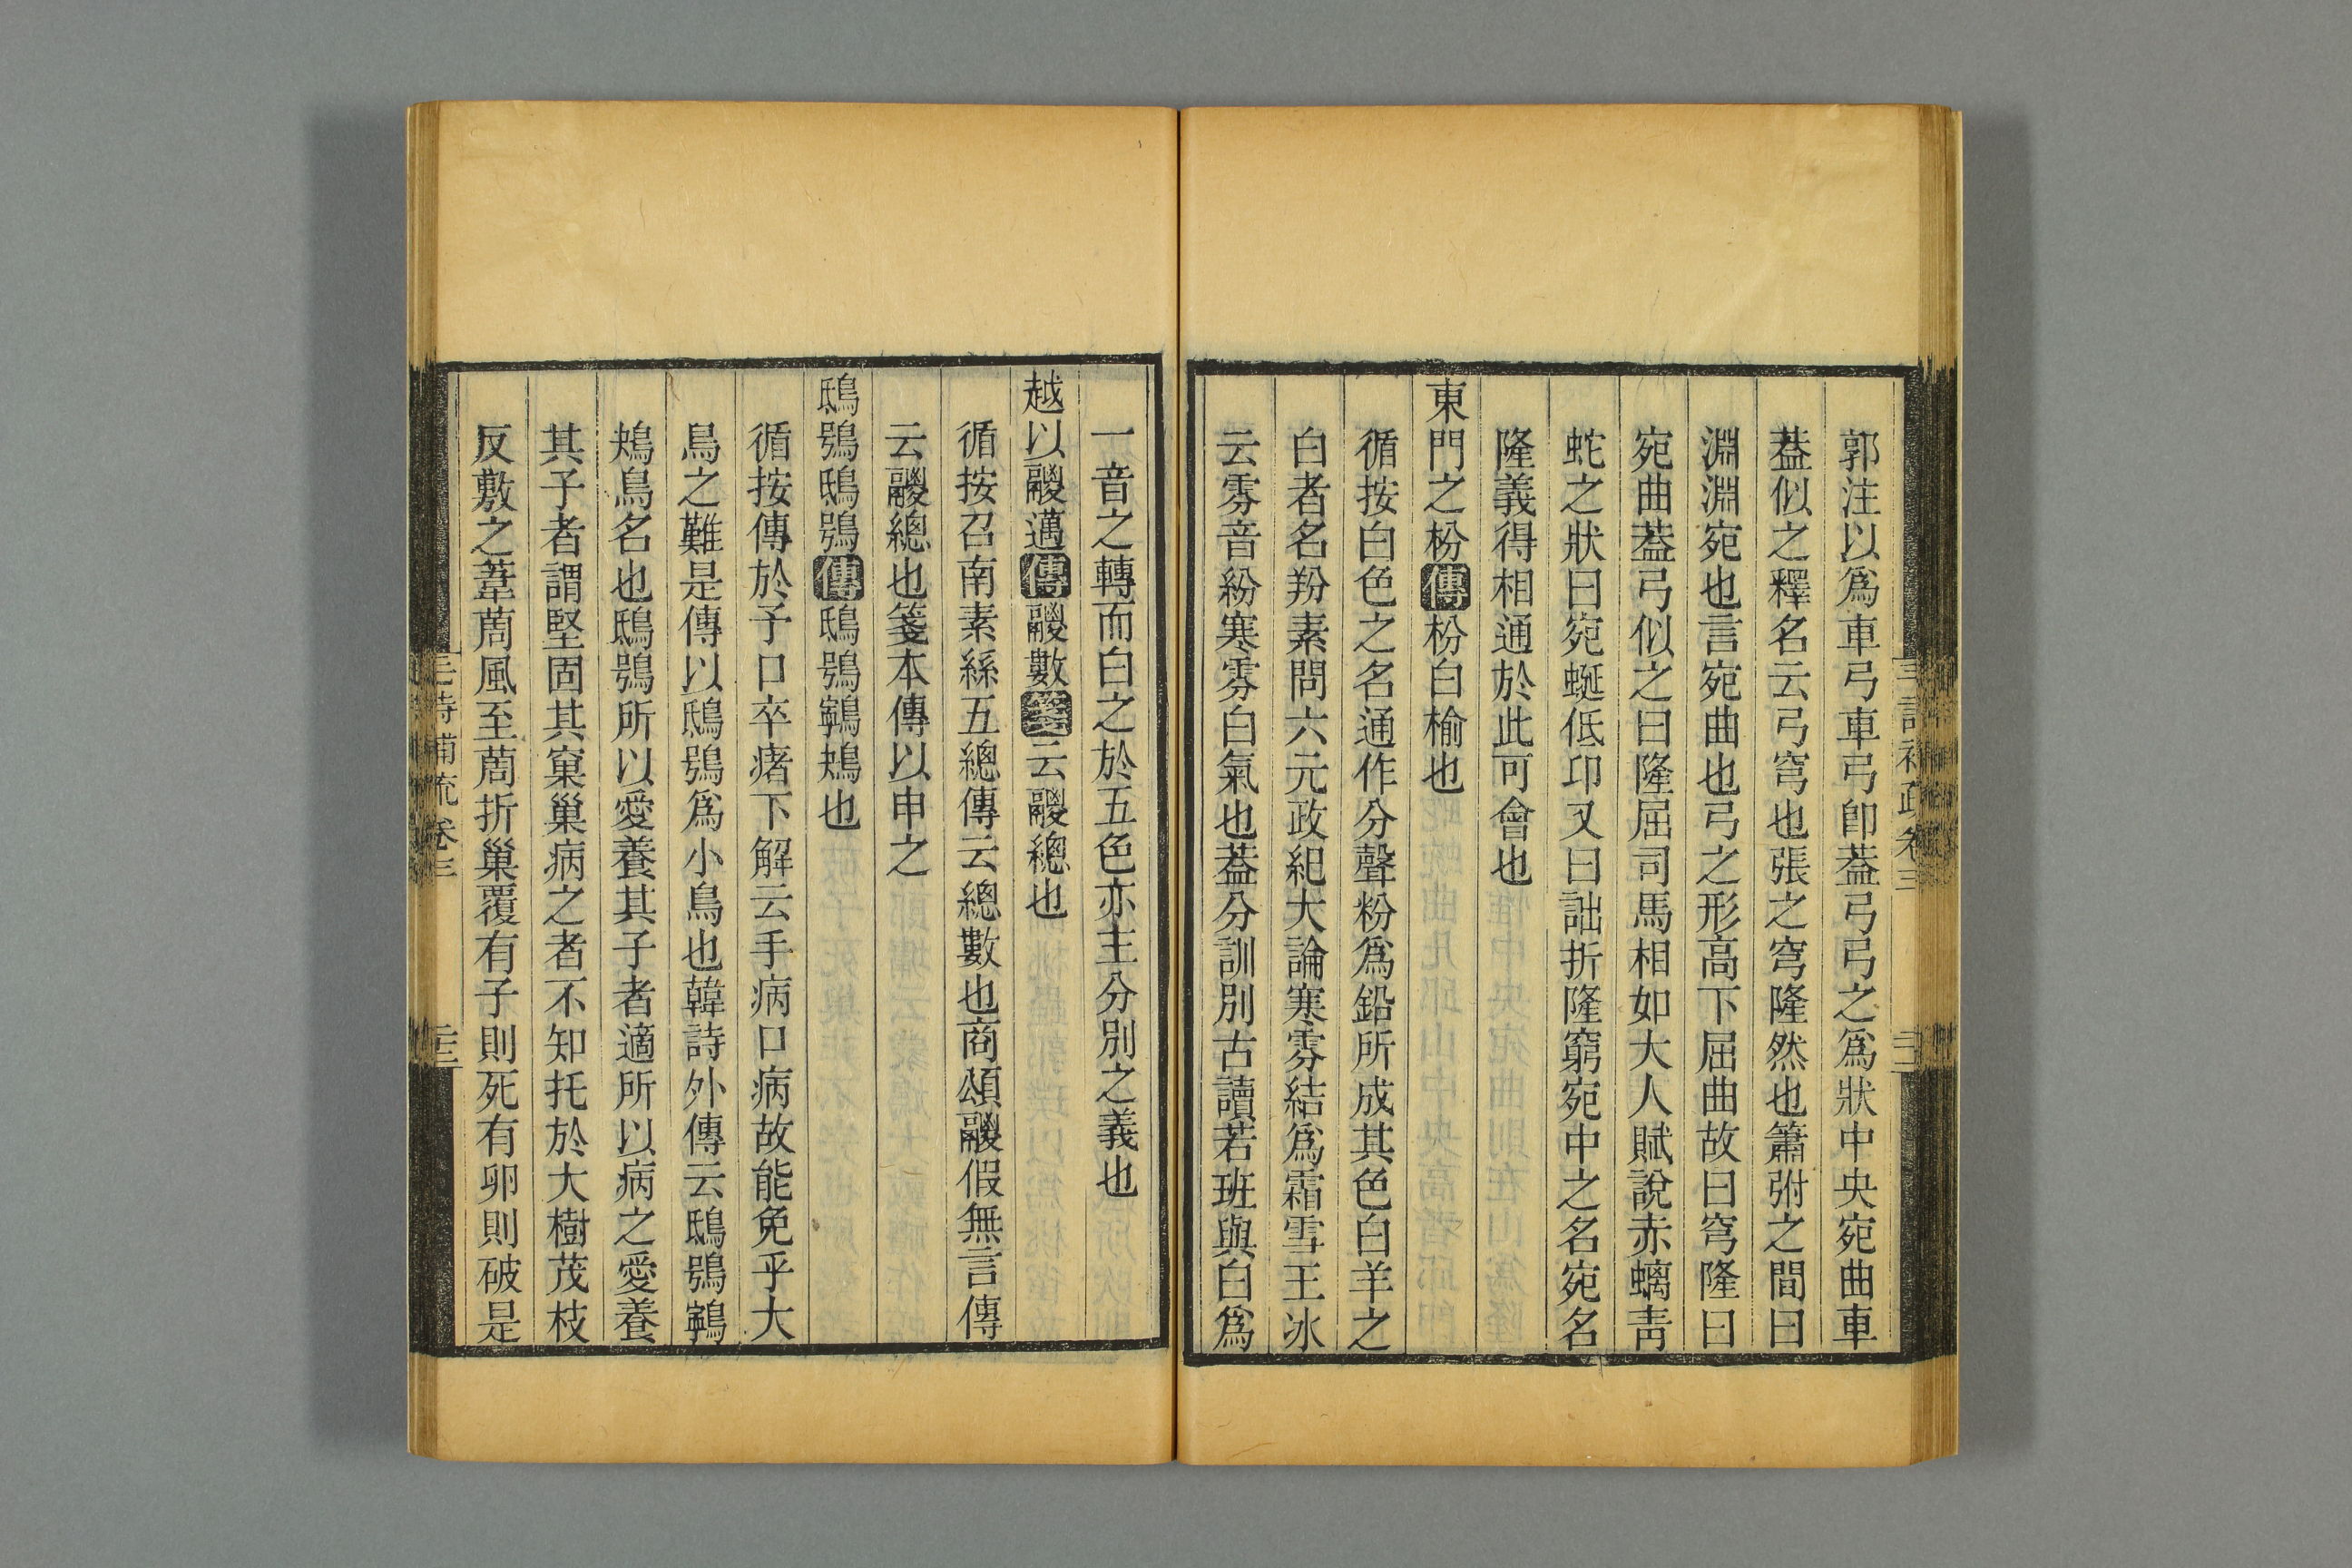 郭注以爲車弓車弓卽葢弓弓之爲狀中央宛曲車
葢似之釋名云弓穹也張之穹隆然也簫弣之間曰
淵淵宛也言宛曲也弓之形高下屈曲故曰穹隆曰
宛曲葢弓似之曰隆屈司馬相如大人賦說赤螭靑
蛇之狀曰宛蜒低卬又曰詘折隆窮宛中之名宛名
隆義得相通於此可會也
東門之枌傳枌白榆也
循按白色之名通作分聲粉爲鉛所成其色白羊之
白者名羒素問六元政紀大論寒雰結爲霜雪王冰
云雰音紛寒雰白氣也葢分訓別古讀若班與白爲
一音之轉而白之於五色亦主分別之義也
越以鬷邁傳鬷數箋云鬷總也
循按召南素絲五總傳云總數也商頌鬷假無言傳
云鬷總也箋本傳以申之
鴟鴞鴟鴞傳鴟鴞鸋鴂也
循按傳於予口卒瘏下解云手病口病故能免乎大
鳥之難是傳以鴟鴞爲小鳥也韓詩外傳云鴟鴞鸋
鴂鳥名也鴟鴞所以愛養其子者適所以病之愛養
其子者謂堅固其窠巢病之者不知托於大樹茂枝
反敷之葦䓊風至䓊折巢覆有子則死有卵則破是